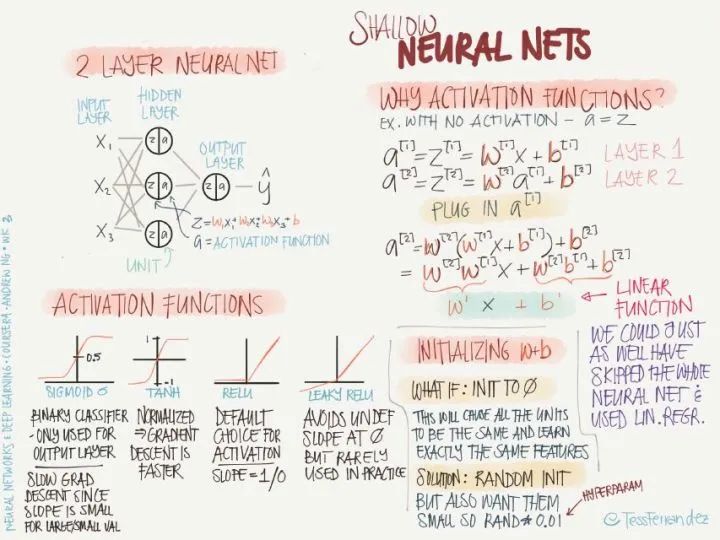 SHALLOW
NEURAL NETS
2 LAYER NEURAL NET
INPUT
LAYER
HIDDEN
LAYER
OUTPUT
LAYER
X₁
X₂
X₃
z a
z a
z a
z a
ŷ
Z=W₁X₁+W₂X₂+W₃X₃+b
a = ACTIVATION FUNCTION
UNIT
ACTIVATION FUNCTIONS
0.5
SIGMOID σ
BINARY CLASSIFIER
- ONLY USED FOR
OUTPUT LAYER
SLOW GRAD
DESCENT SINCE
SLOPE IS SMALL
FOR LARGE/SMALL VAL
1
-1
TANH
NORMALIZED
⇒ GRADIENT
DESCENT IS
FASTER
RELU
DEFAULT
CHOICE FOR
ACTIVATION
SLOPE = 1/0
LEAKY RELU
AVOIDS UNDEF
SLOPE AT 0
BUT RARELY
USED IN PRACTICE
WHY ACTIVATION FUNCTIONS?
EX. WITH NO ACTIVATION - a = Z
a^[1] = Z^[1] = W^[1]X + b^[1] LAYER 1
a^[2] = Z^[2] = W^[2]a^[1] + b^[2] LAYER 2
PLUG IN a^[1]
a^[2] = W^[2](W^[1]X + b^[1]) + b^[2]
= W^[2]W^[1]X + W^[2]b^[1] + b^[2]
W' X + b'
LINEAR
FUNCTION
WE COULD JUST
AS WELL HAVE
SKIPPED THE WHOLE
NEURAL NET &
USED LIN. REGR.
INITIALIZING W+b
WHAT IF: INIT TO 0
THIS WILL CAUSE ALL THE UNITS
TO BE THE SAME AND LEARN
EXACTLY THE SAME FEATURES
SOLUTION: RANDOM INIT
BUT ALSO WANT THEM
SMALL SO RAND * 0.01
HYPERPARAM
@TessFerrandez
NEURAL NETWORKS & DEEP LEARNING · COURSERA · ANDREW NG · WK 3